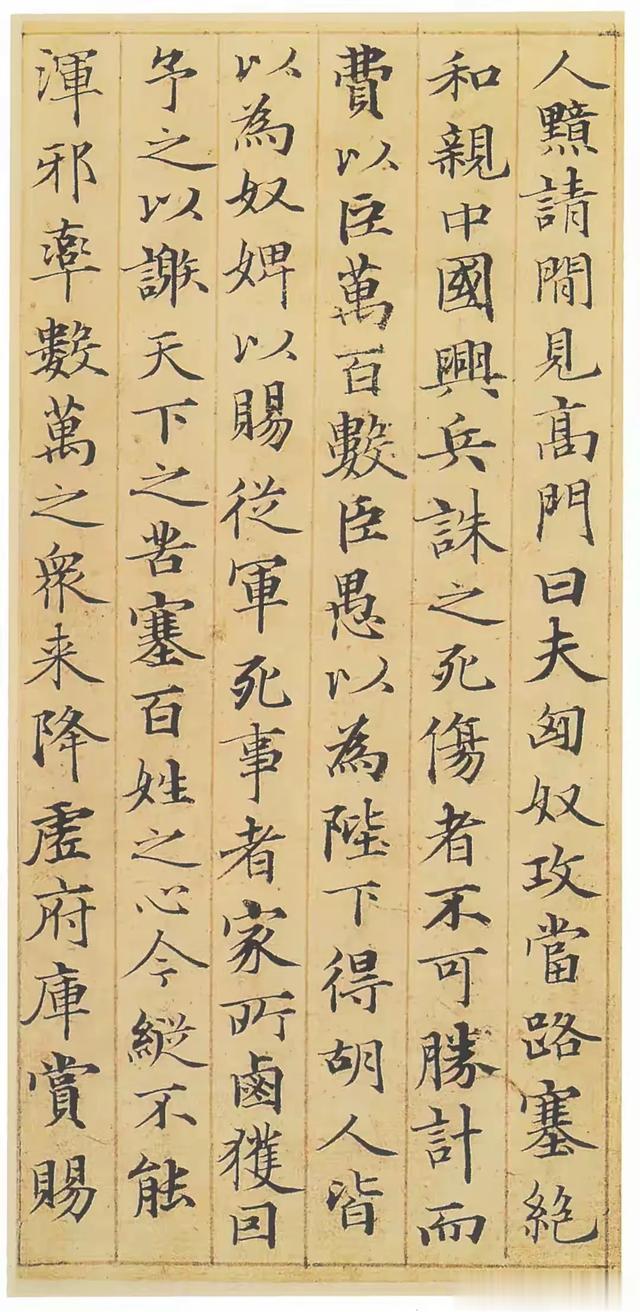 人黥請閒見高門曰夫匈奴攻當路塞絶
和親中國興兵誅之死傷者不可勝計而
費以臣萬百數臣愚以為陛下得胡人皆
以為奴婢以賜從軍死事者家所鹵獲囙
予之以謝天下之苦塞百姓之心今縱不能
渾邪率數萬之衆来降虛府庫賞賜